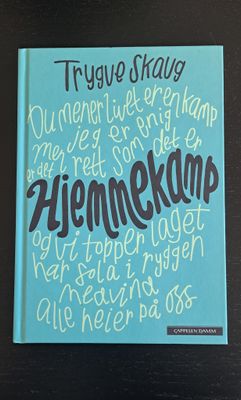 Trygve Skaug
Du mener livet er en kamp
men jeg er enig
er det i rett som det er
Hjemmekamp
og vi topper laget
har sola i ryggen
medvind
alle heier på oss
CAPPELEN DAMM